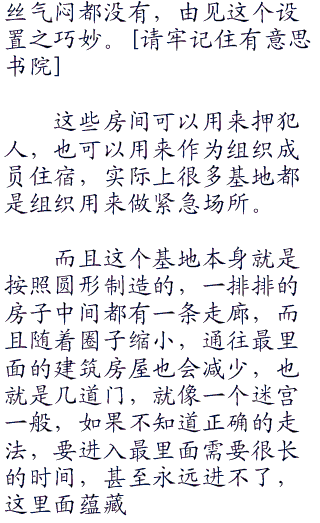 丝气闷都没有，由见这个设
置之巧妙。[请牢记住有意思
书院]
这些房间可以用来押犯
人，也可以用来作为组织成
员住宿，实际上很多基地都
是组织用来做紧急场所。
而且这个基地本身就是
按照圆形制造的，一排排的
房子中间都有一条走廊，而
且随着圈子缩小，通往最里
面的建筑房屋也会减少，也
就是几道门，就像一个迷宫
一般，如果不知道正确的走
法，要进入最里面需要很长
的时间，甚至永远进不了，
这里面蕴藏